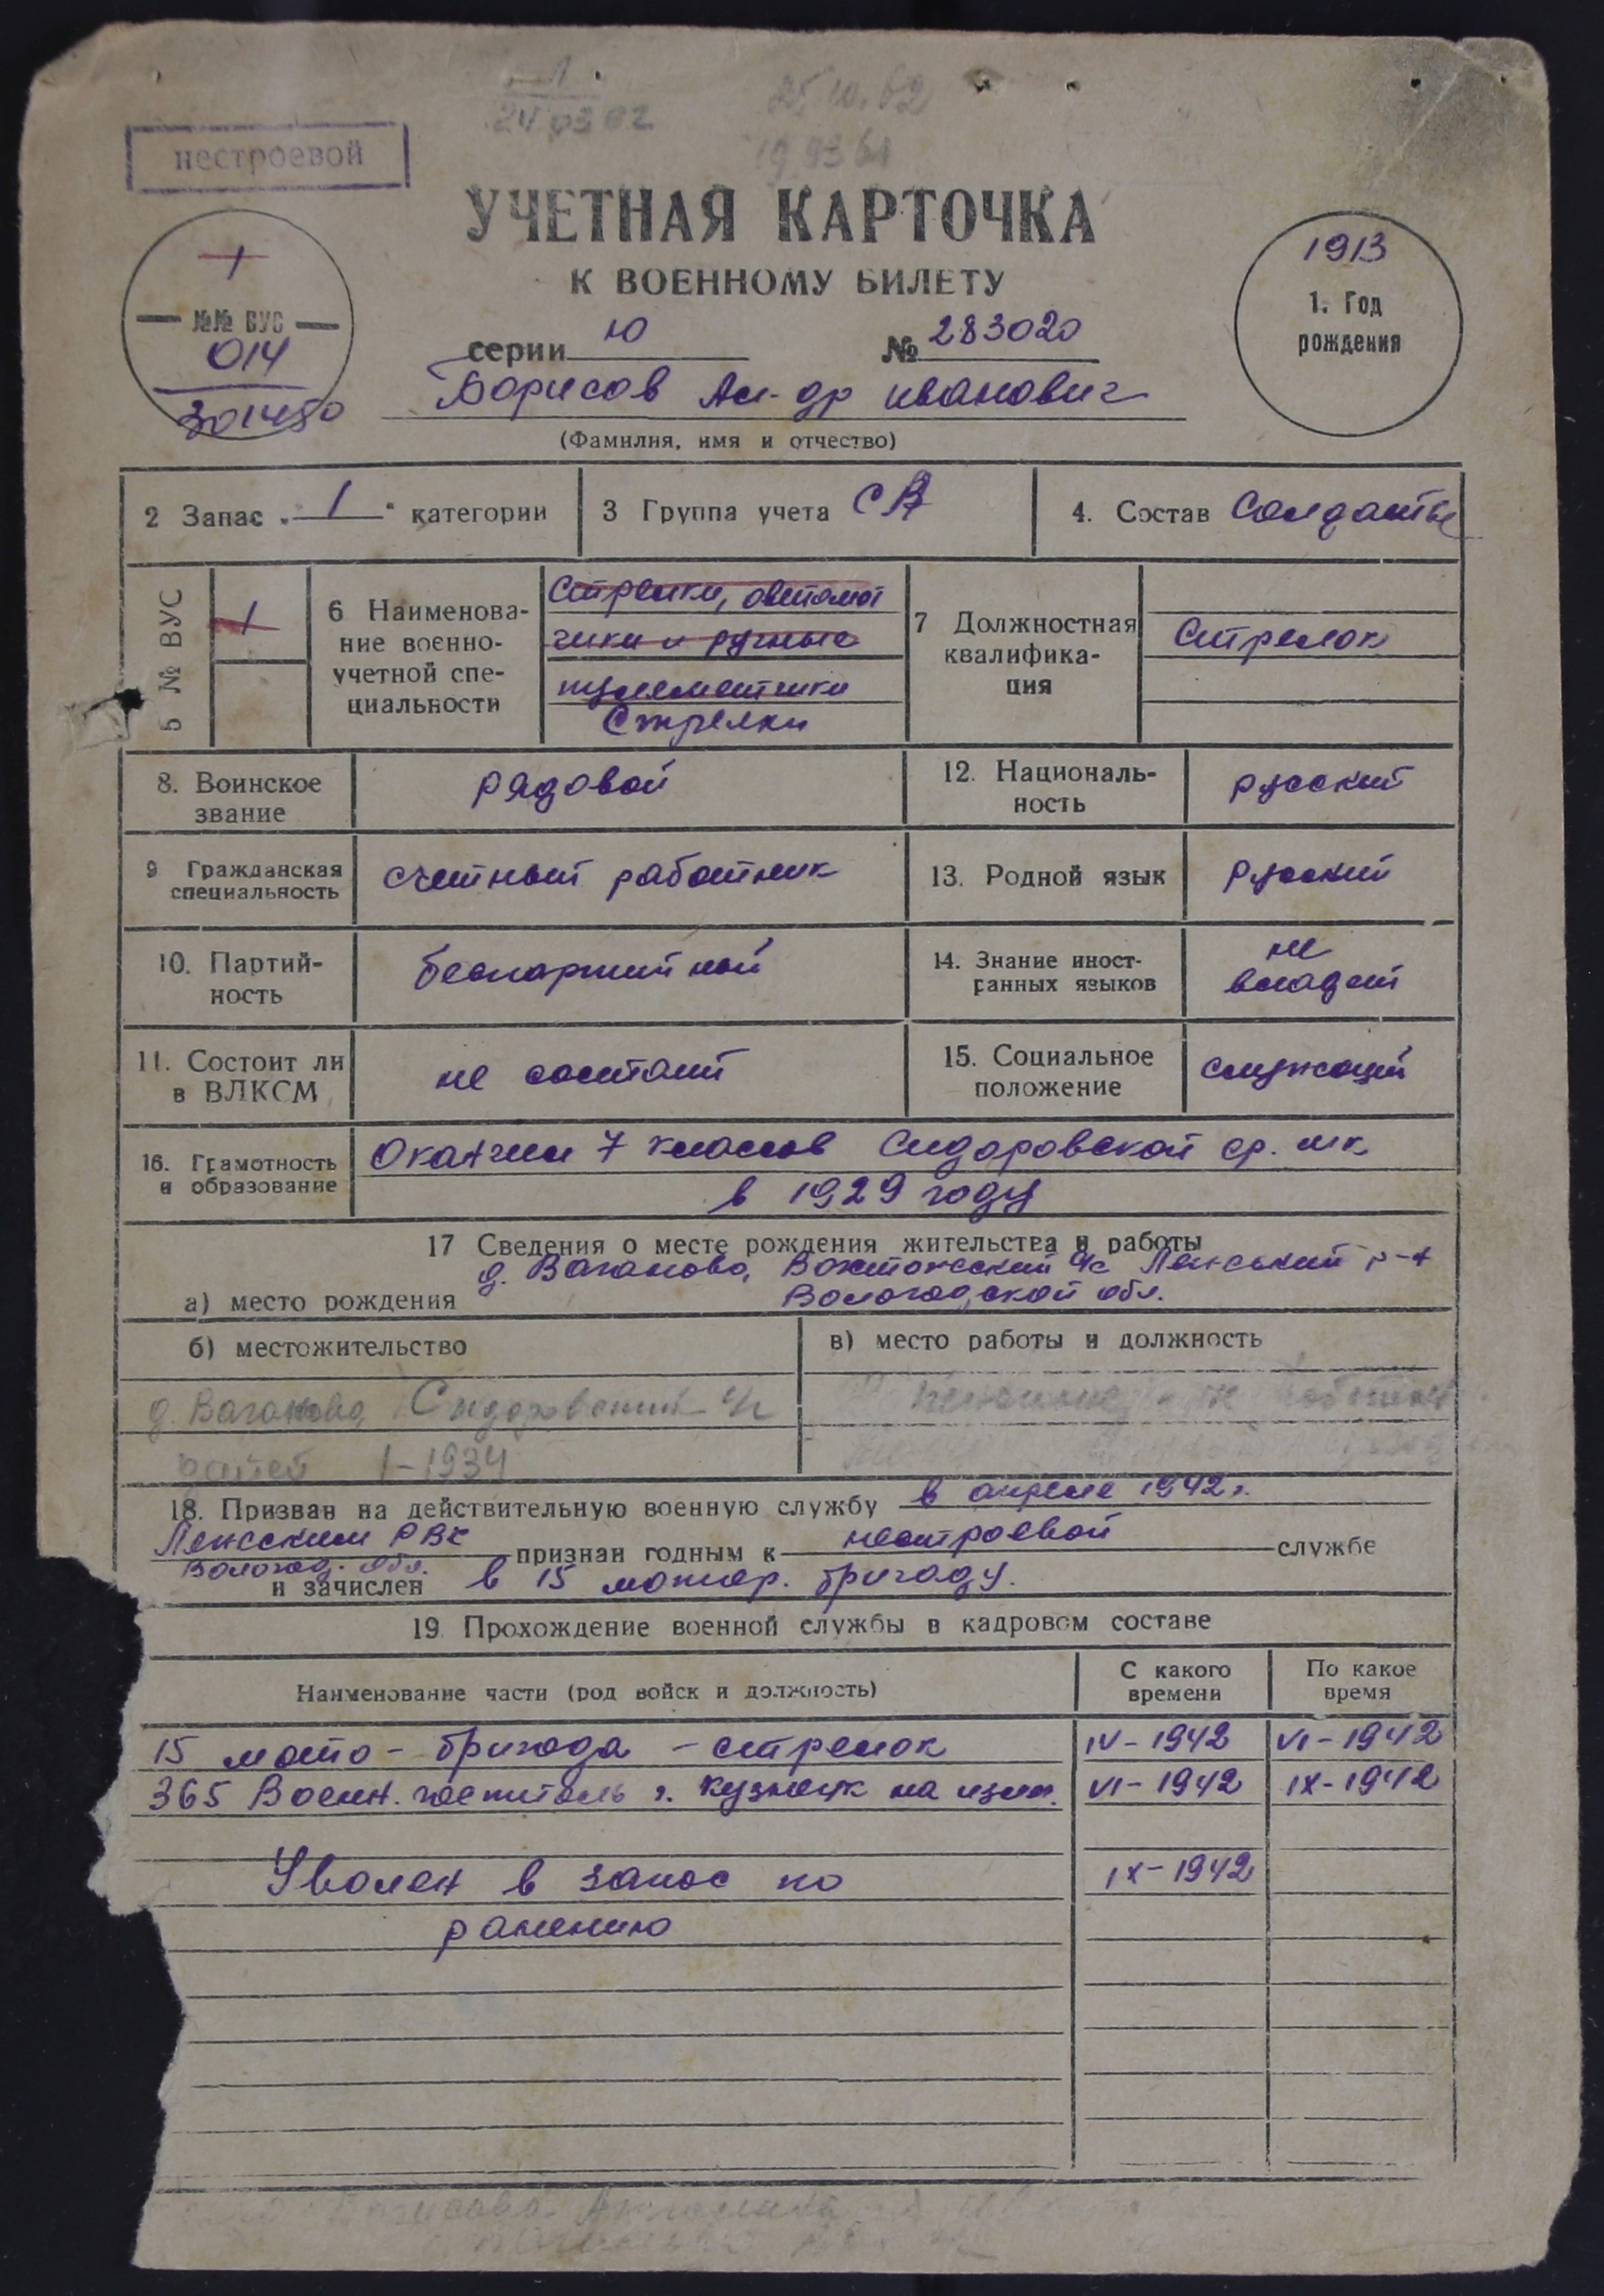 25 10.62
24 03 62
19 93 61
нестроевой
УЧЕТНАЯ КАРТОЧКА
К ВОЕННОМУ БИЛЕТУ
серии Ю № 283020
1
№№ ВУС
014
301450
1913
1. Год
рождения
Борисов Ал-др Иванович
(Фамилия, имя и отчество)
2 Запас „ 1 “ категории
3 Группа учета СА
4. Состав Солдаты
5 № ВУС
1
6 Наименова-
ние военно-
учетной спе-
циальности
Стрелки, автомат
чики и ручные
пулеметчики
Стрелки
7 Должностная
квалифика-
ция
Стрелок
8. Воинское
звание
рядовой
12. Националь-
ность
русский
9 Гражданская
специальность
счетный работник
13. Родной язык
русский
10. Партий-
ность
беспартийный
14. Знание иност-
ранных языков
не
владеет
11. Состоит ли
в ВЛКСМ
не состоит
15. Социальное
положение
служащий
16. Грамотность
и образование
Окончил 7 классов Сидоровской ср. шк.
в 1929 году
17 Сведения о месте рождения жительства и работы
д. Ваганово, с/с р-н
а) место рождения
Вологодской обл.
б) местожительство
в) место работы и должность
д. Ваганово Сидоровский с/с
детей 1-1934
18. Призван на действительную военную службу в апреле 1942г.
РВК признан годным к нестроевой службе
Вологод. обл.
и зачислен в 15 мотостр. бригаду.
19 Прохождение военной службы в кадровом составе
Наименование части (род войск и должность)
С какого
времени
По какое
время
15 мото-бригада - стрелок IV-1942 VI-1942
365 Военн. госпиталь г. Кузнецк на излеч. VI-1942 IX-1942
Уволен в запас по IX-1942
ранению